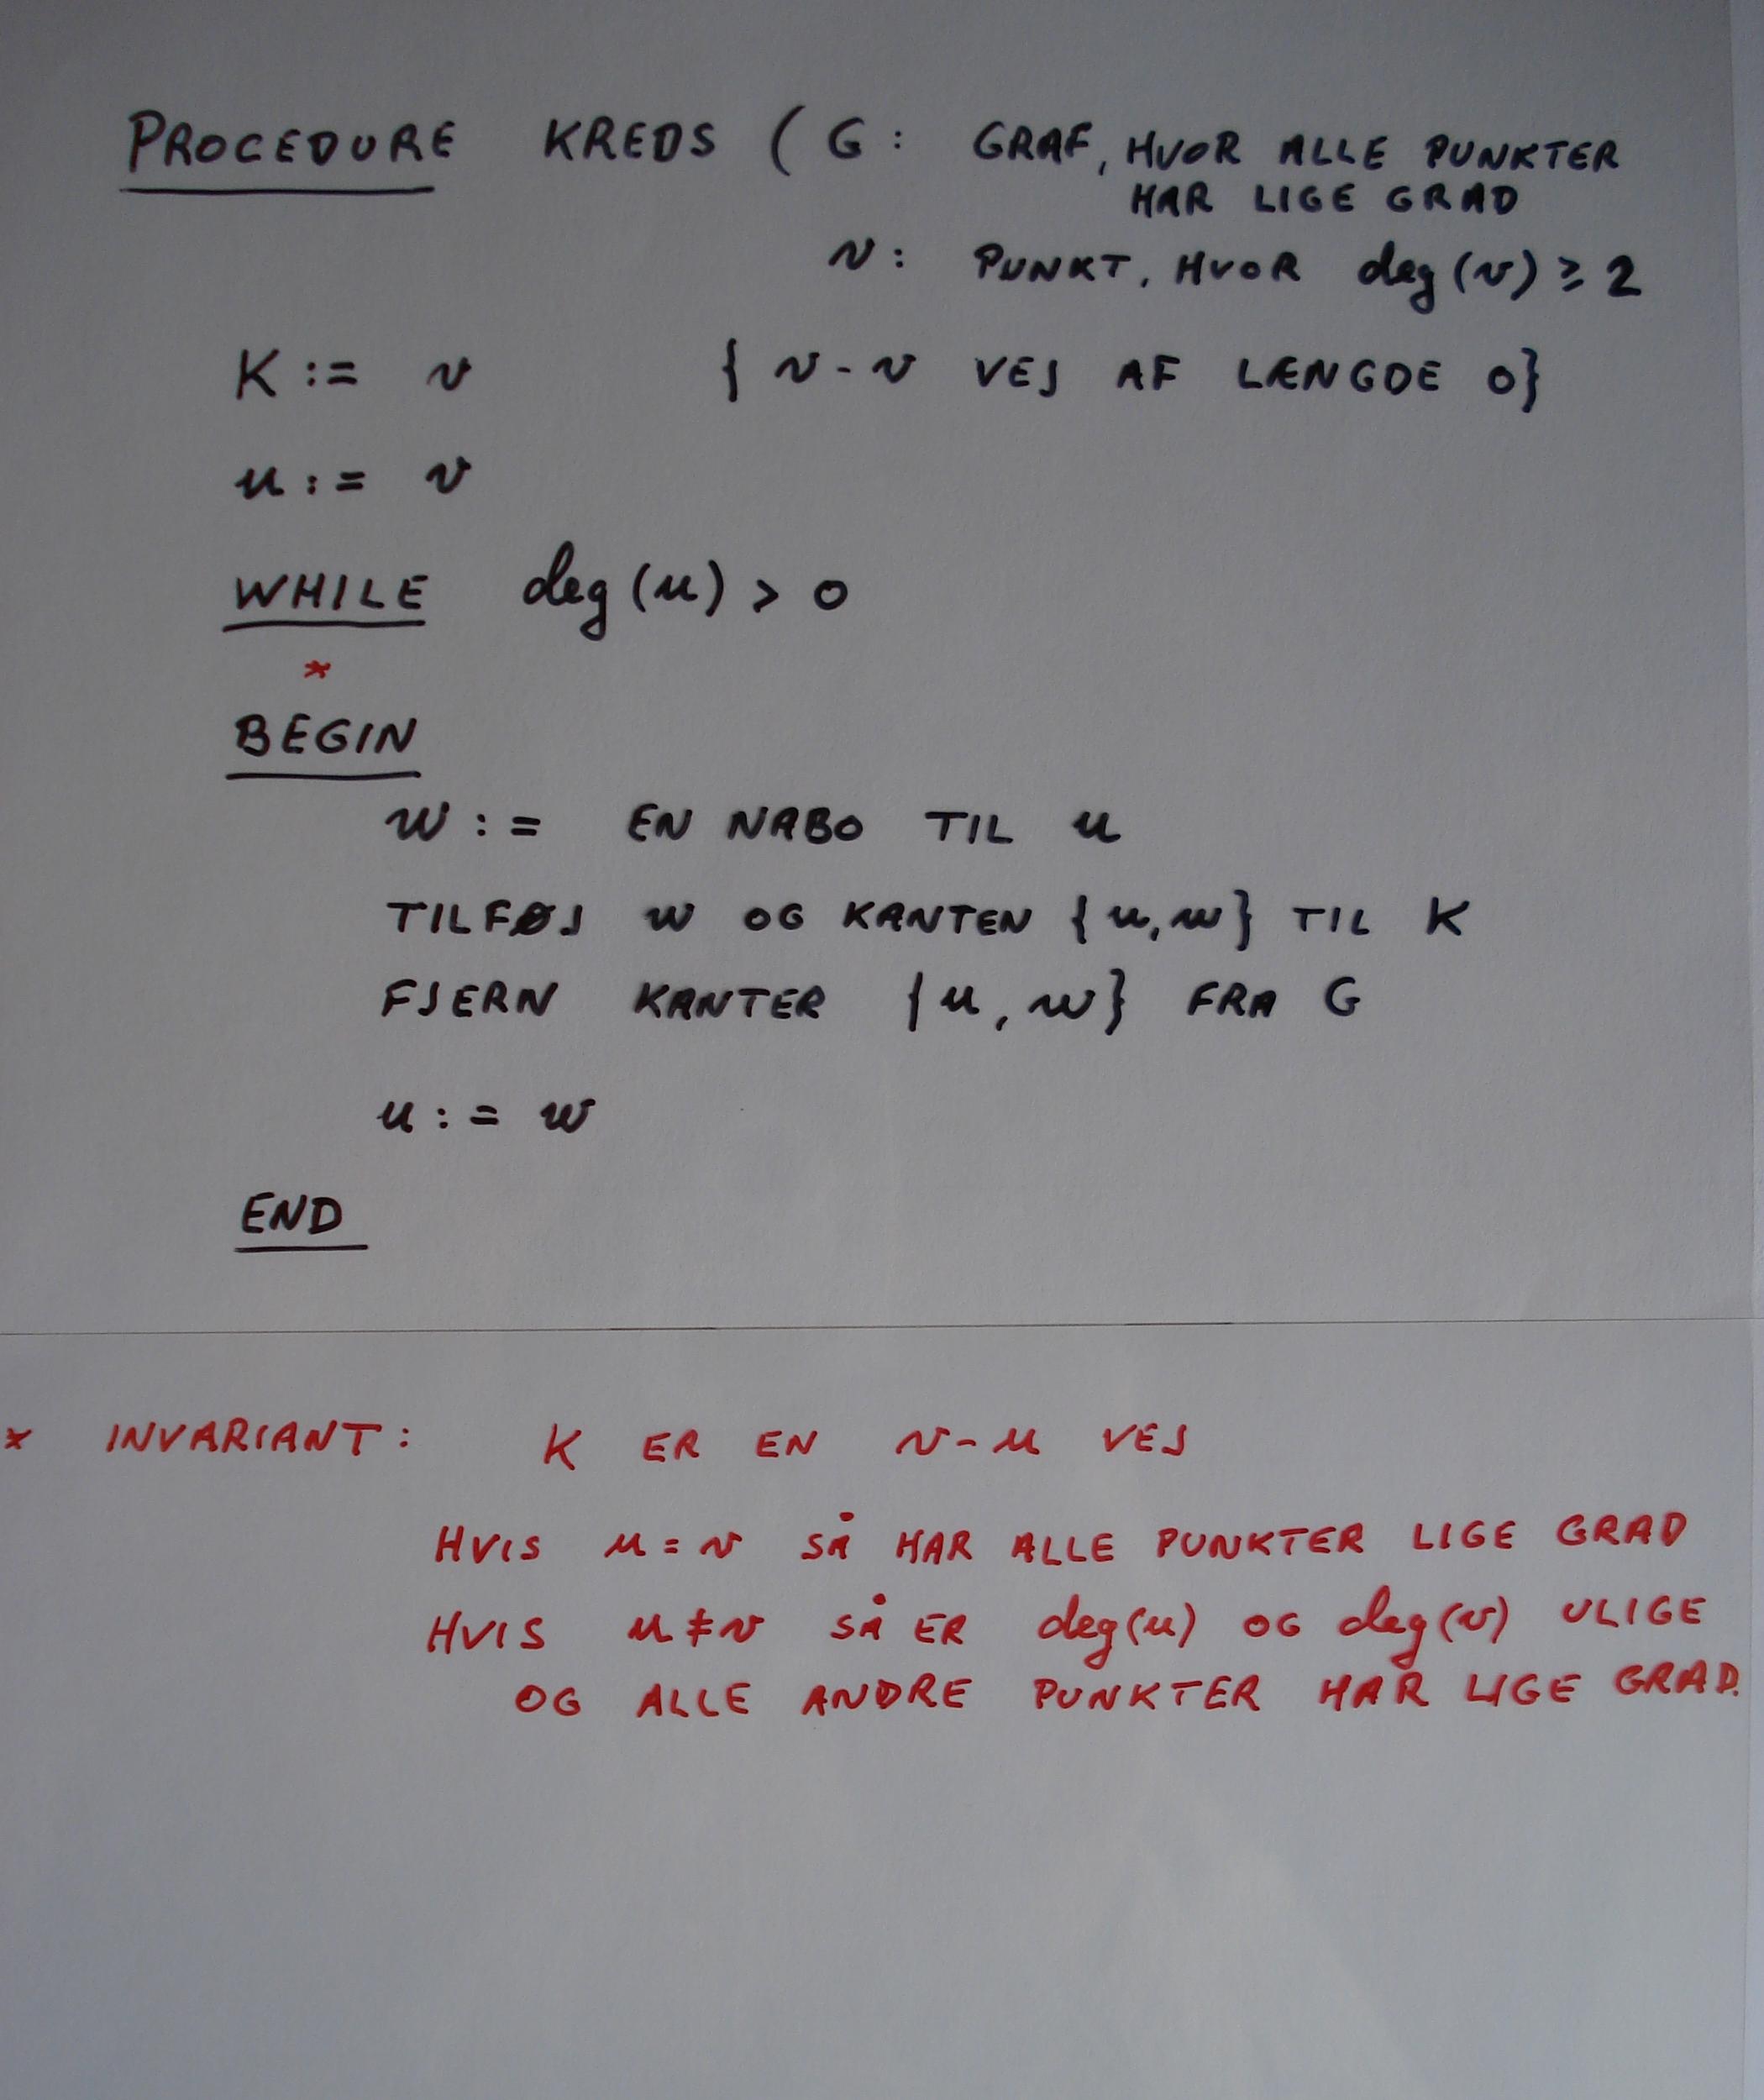 PROCEDURE KREDS ( G: GRAF, HVOR ALLE PUNKTER
HAR LIGE GRAD
v: PUNKT, HVOR deg(v) ≥ 2
K := v { v-v VEJ AF LÆNGDE 0}
u := v
WHILE deg(u) > 0
*
BEGIN
w := EN NABO TIL u
TILFØJ w OG KANTEN {u,w} TIL K
FJERN KANTER {u,w} FRA G
u := w
END
* INVARIANT: K ER EN v-u VEJ
HVIS u=v SÅ HAR ALLE PUNKTER LIGE GRAD
HVIS u≠v SÅ ER deg(u) OG deg(v) ULIGE
OG ALLE ANDRE PUNKTER HAR LIGE GRAD.